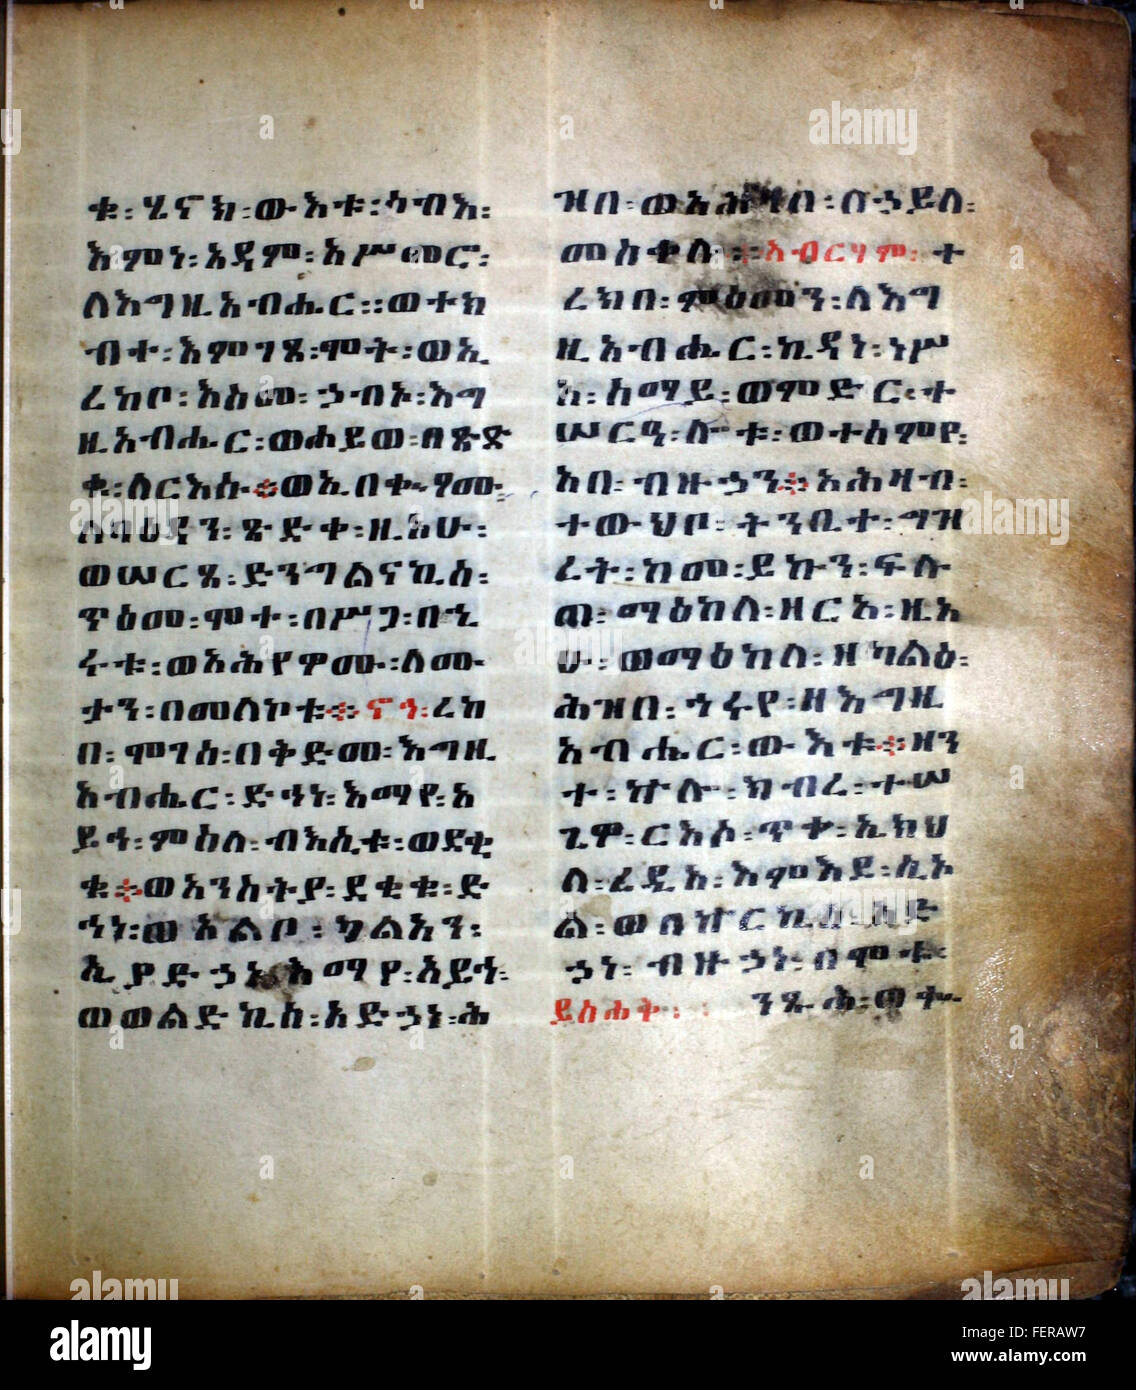 ቁ፡ሄኖክ፡ውእቱ፡ሳብአ፡
እምነ፡አዳም፡አሥመሮ፡
ለእግዚአብሔር፡፡ወተክ
ብተ፡እምገጼ፡ሞት፡ወኢ
ረከቦ፡እስመ፡ኃብኦ፡እግ
ዚአብሔር፡ወሐይወ፡
ወኢበቀ
ጽድቀ፡ዚአሁ፡
ወሠርጼ፡ድንግልናኪሰ፡
ጥዕመ፡ሞተ፡በሥጋ፡በኂ
ሩቱ፡ወአሕየዎሙ፡ለሙ
ታን፡በመለኮቱ፡ኖኅ፡ረከ
በ፡ሞገሰ፡በቅድመ፡እግዚ
አብሔር፡ድኅነ፡እማየ፡አ
ይኅ፡ምስለ፡ብእሲቱ፡ወደቂ
ቁ፡ወአንስትያ፡ደቂቁ፡ድ
ኅነ፡ወአልቦ፡ካልአን፡
እማየ፡አይኅ፡
ወወልድኪሰ፡አድኃነ፡ሕ
ዝበ፡ወአሕዛበ፡በኃይለ፡
መስቀሉ፡አብርሃም፡ተ
ረክበ፡ምዕመን፡ለእግ
ዚአብሔር፡ኪዳነ፡ነሥ
አ፡ሰማይ፡ወምድር፡ተ
ሠርዓ፡ሎቱ፡ወተሰምየ፡
አበ፡ብዙኃን፡አሕዛብ፡
ተውህቦ፡ትንቢተ፡ግዝ
ረት፡ከመ፡ይኩን፡ፍሉ
ጠ፡ማዕከለ፡ዘርአ፡ዚአ
ሁ፡ወማዕከለ፡ዘካልዕ፡
ሕዝበ፡ኅሩየ፡ዘእግዚ
አብሔር፡ውእቱ፡ዘን
ተ፡ኵሉ፡ክብረ፡ተሠ
ጊዎ፡ርእሶ፡ጥቀ፡ኢክህ
ለ፡ፈዲአ፡እምእደ፡ሲኦ
ል፡ወበኵርኪሰ፡አድ
ኃነ፡ብዙኃነ፡በሞቱ፡
ይስሐቅ፡ ንጹሕ፡
alamy
Image ID: FERAW7
www.alamy.com